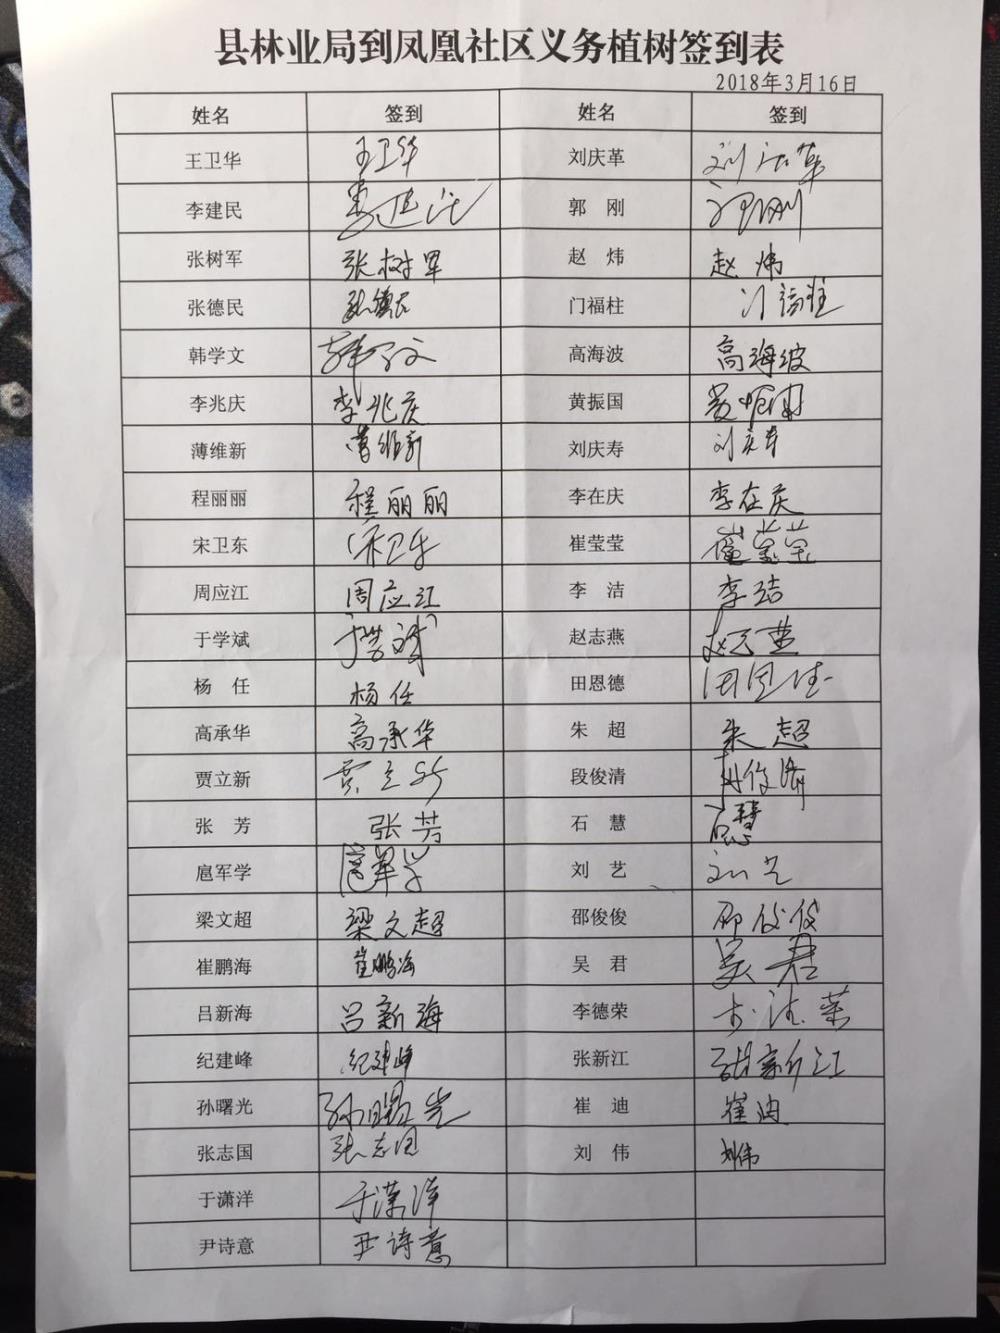 县林业局到凤凰社区义务植树签到表
2018年3月16日
姓名 签到 姓名 签到
王卫华 王卫华 刘庆革 刘庆革
李建民 李建民 郭 刚 郭刚
张树军 张树军 赵 炜 赵炜
张德民 张德民 门福柱 门福柱
韩学文 韩学文 高海波 高海波
李兆庆 李兆庆 黄振国 黄振国
薄维新 薄维新 刘庆寿 刘庆寿
程丽丽 程丽丽 李在庆 李在庆
宋卫东 宋卫东 崔莹莹 崔莹莹
周应江 周应江 李 洁 李洁
于学斌 于学斌 赵志燕 赵志燕
杨 任 杨任 田恩德 田恩德
高承华 高承华 朱 超 朱超
贾立新 贾立新 段俊清 段俊清
张 芳 张芳 石 慧 石慧
扈军学 扈军学 刘 艺 刘艺
梁文超 梁文超 邵俊俊 邵俊俊
崔鹏海 崔鹏海 吴 君 吴君
吕新海 吕新海 李德荣 李德荣
纪建峰 纪建峰 张新江 张新江
孙曙光 孙曙光 崔 迪 崔迪
张志国 张志国 刘 伟 刘伟
于潇洋 于潇洋
尹诗意 尹诗意